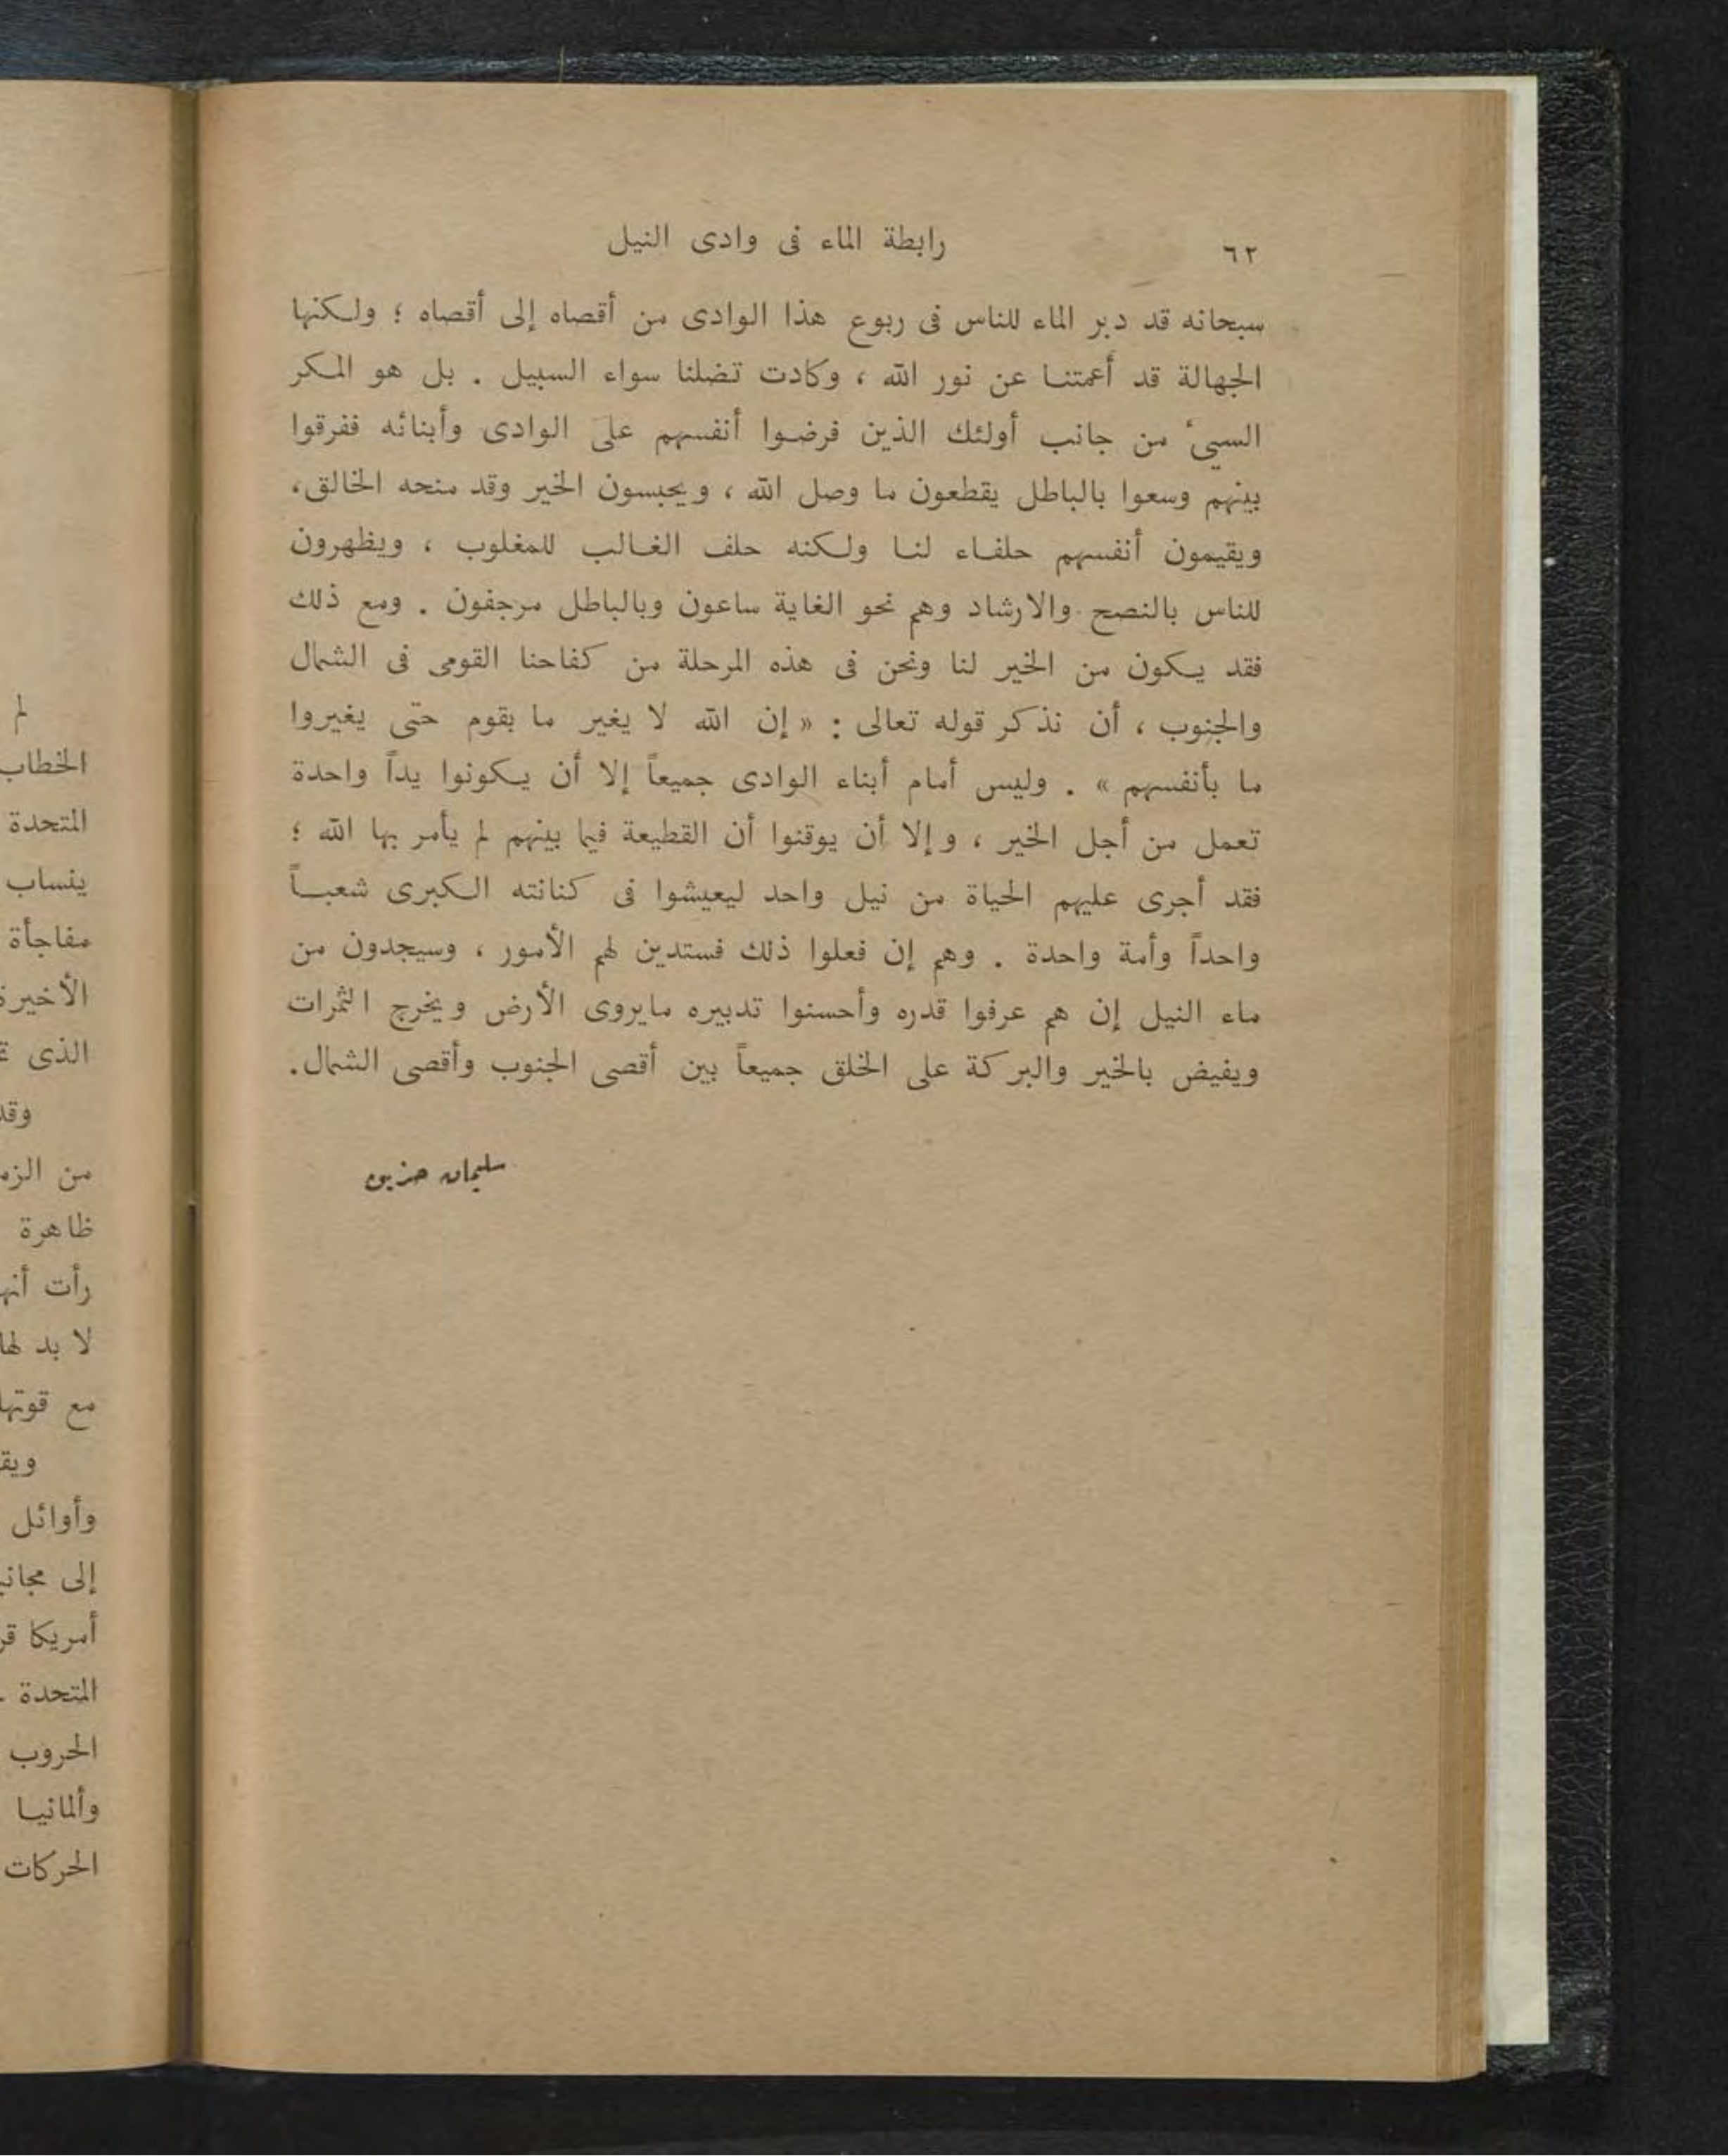 ٦٢
رابطة الماء فى وادى النيل
سبحانه قد دبر الماء للناس فى ربوع هذا الوادى من أقصاه إلى أقصاه ؛ ولكنها
الجهالة قد أعمتنا عن نور الله ، وكادت تضلنا سواء السبيل . بل هو المكر
السيئ من جانب أولئك الذين فرضوا أنفسهم على الوادى وأبنائه ففرقوا
بينهم وسعوا بالباطل يقطعون ما وصل الله ، ويحبسون الخير وقد منحه الخالق،
ويقيمون أنفسهم حلفاء لنا ولكنه حلف الغالب للمغلوب ، ويظهرون
للناس بالنصح والارشاد وهم نحو الغاية ساعون وبالباطل مرجفون . ومع ذلك
فقد يكون من الخير لنا ونحن فى هذه المرحلة من كفاحنا القومى فى الشمال
والجنوب ، أن نذكر قوله تعالى : « إن الله لا يغير ما بقوم حتى يغيروا
ما بأنفسهم » . وليس أمام أبناء الوادى جميعاً إلا أن يكونوا يداً واحدة
تعمل من أجل الخير ، وإلا أن يوقنوا أن القطيعة فيما بينهم لم يأمر بها الله ؛
فقد أجرى عليهم الحياة من نيل واحد ليعيشوا فى كنانته الكبرى شعباً
واحداً وأمة واحدة . وهم إن فعلوا ذلك فستدين لهم الأمور ، وسيجدون من
ماء النيل إن هم عرفوا قدره وأحسنوا تدبيره مايروى الأرض ويخرج الثمرات
ويفيض بالخير والبركة على الخلق جميعاً بين أقصى الجنوب وأقصى الشمال.
سليمان حزين
لم
الخطاب
المتحدة
ينساب
مفاجأة
الأخيرة
الذى
وقد
من
ظاهرة
رأت
لا بد لها
مع قوتها
وأوائل
إلى
أمريكا
المتحدة
الحروب
وألمانيا
الحركات